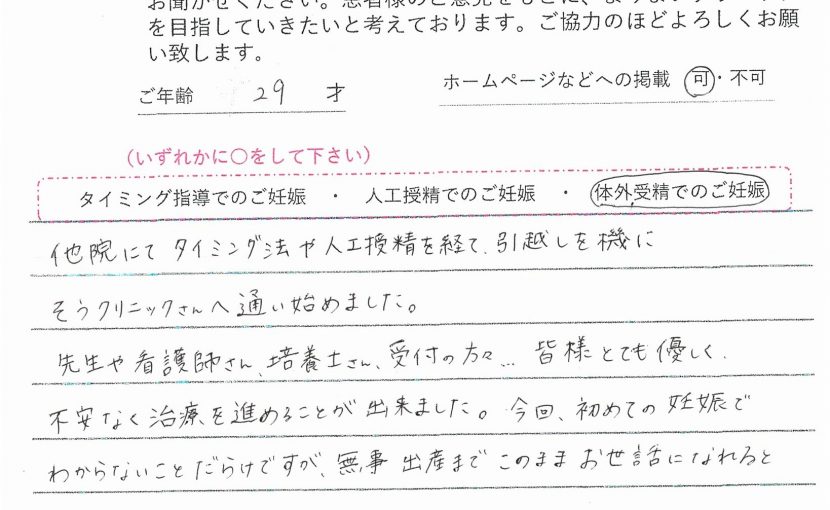 を目指していきたいと考えております。ご協力のほどよろしくお願
い致します。
ご年齢 29 才
ホームページなどへの掲載 可・不可
(いずれかに○をして下さい)
タイミング指導でのご妊娠 ・ 人工授精でのご妊娠 ・ 体外受精でのご妊娠
他院にてタイミング法や人工授精を経て、引越しを機に
そうクリニックさんへ通い始めました。
先生や看護師さん、培養士さん、受付の方々… 皆様とても優しく、
不安なく治療を進めることが出来ました。今回、初めての妊娠で
わからないことだらけですが、無事出産までこのままお世話になれると